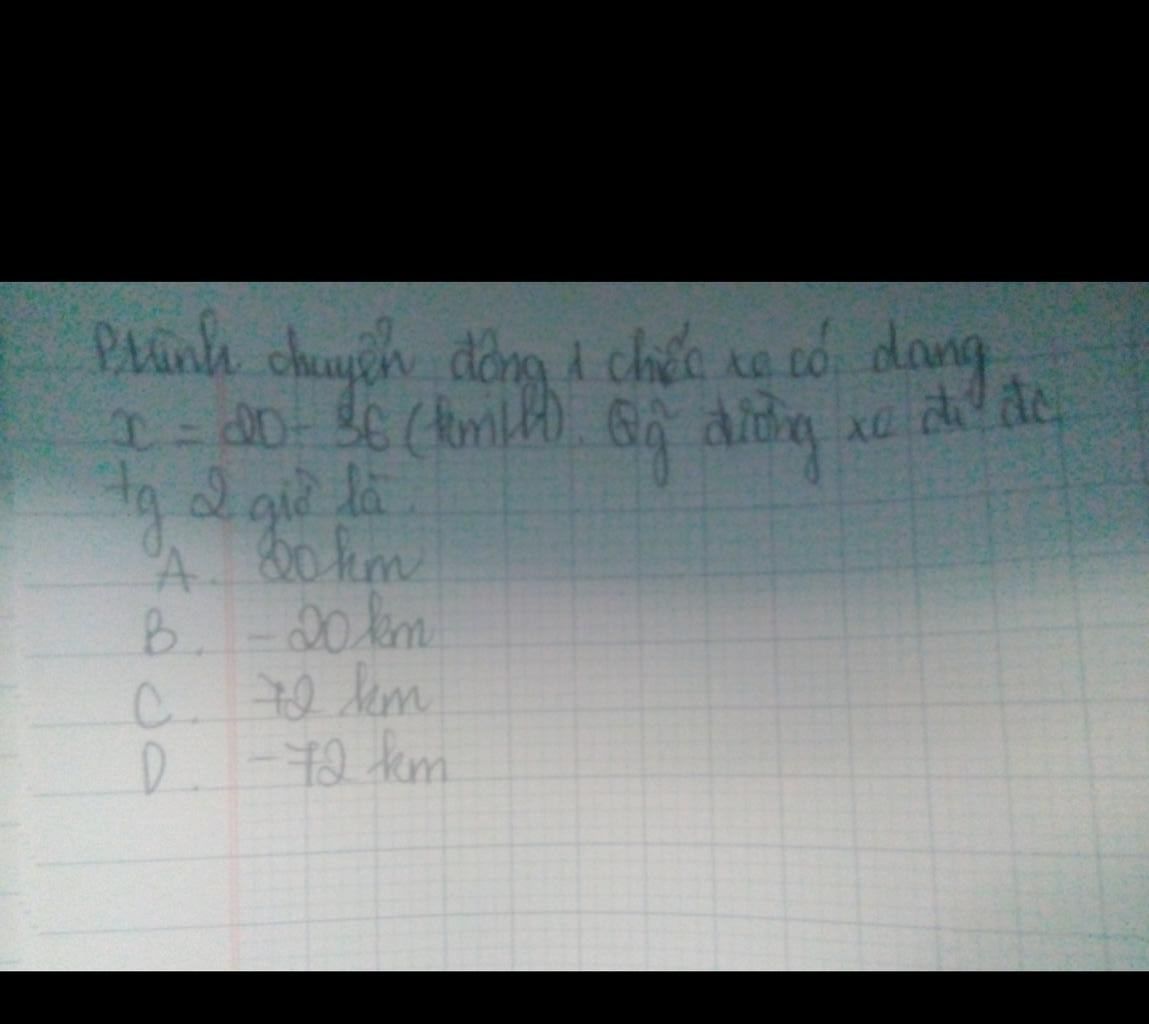 Ptrình chuyển động 1 chiếc xe có dạng
x = 20 - 36 (km/h). Qg̃ đường xe đi đc
tg 2 giờ là.
A. 20 km
B. - 20 km
C. 72 km
D. - 72 km